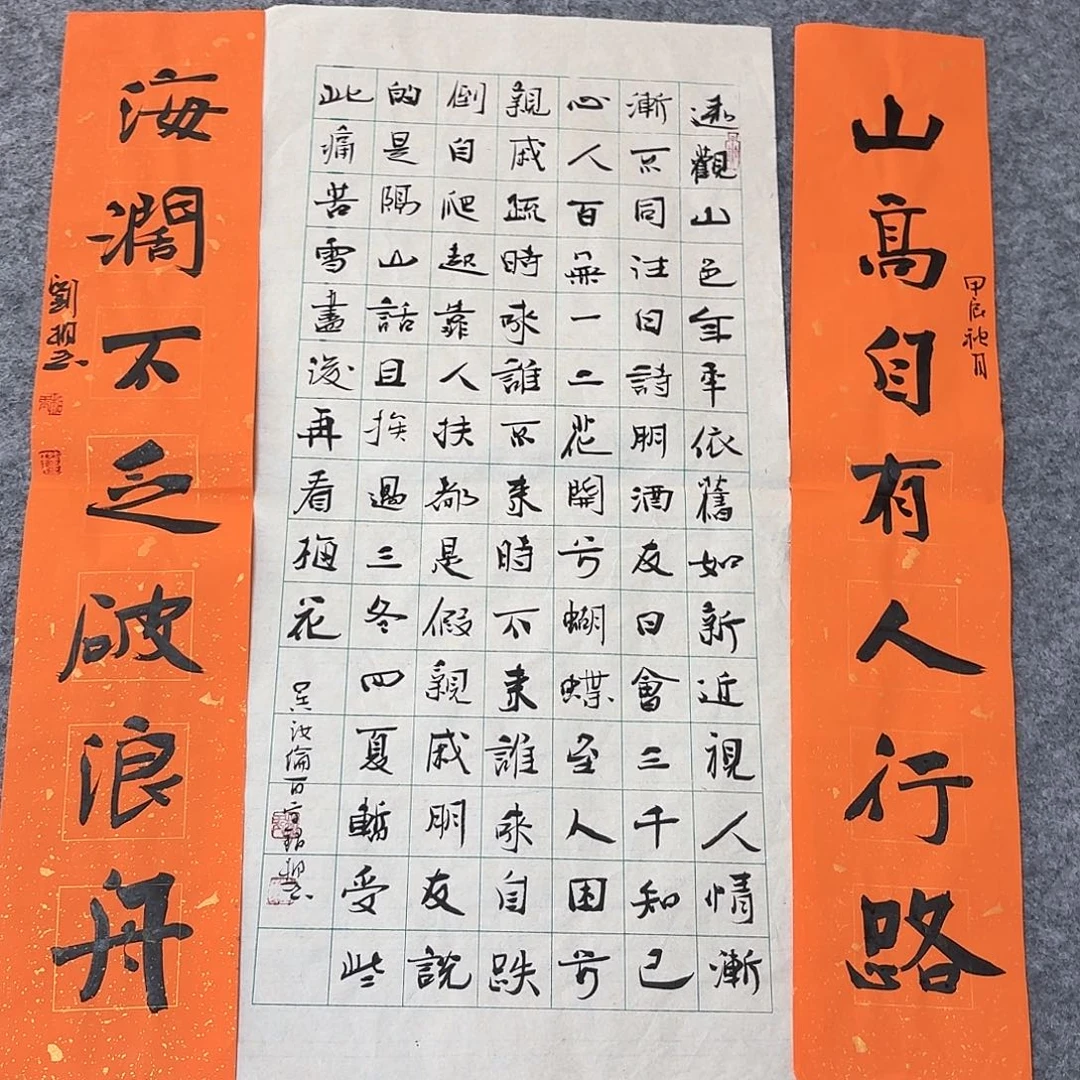 山高自有人行路
甲辰秋月
遠觀山色年年依舊如新近視人情漸
漸不同往日詩朋酒友日會三千知己
心人百無一二花開兮蝴蝶至人困兮
親戚疏時來誰不来時不来誰來自跌
倒自爬起靠人扶都是假親戚朋友說
的是隔山話且挨過三冬四夏暫受些
此痛苦雪盡後再看梅花
吳汝倫百字銘
海濶不乏破浪舟
劉